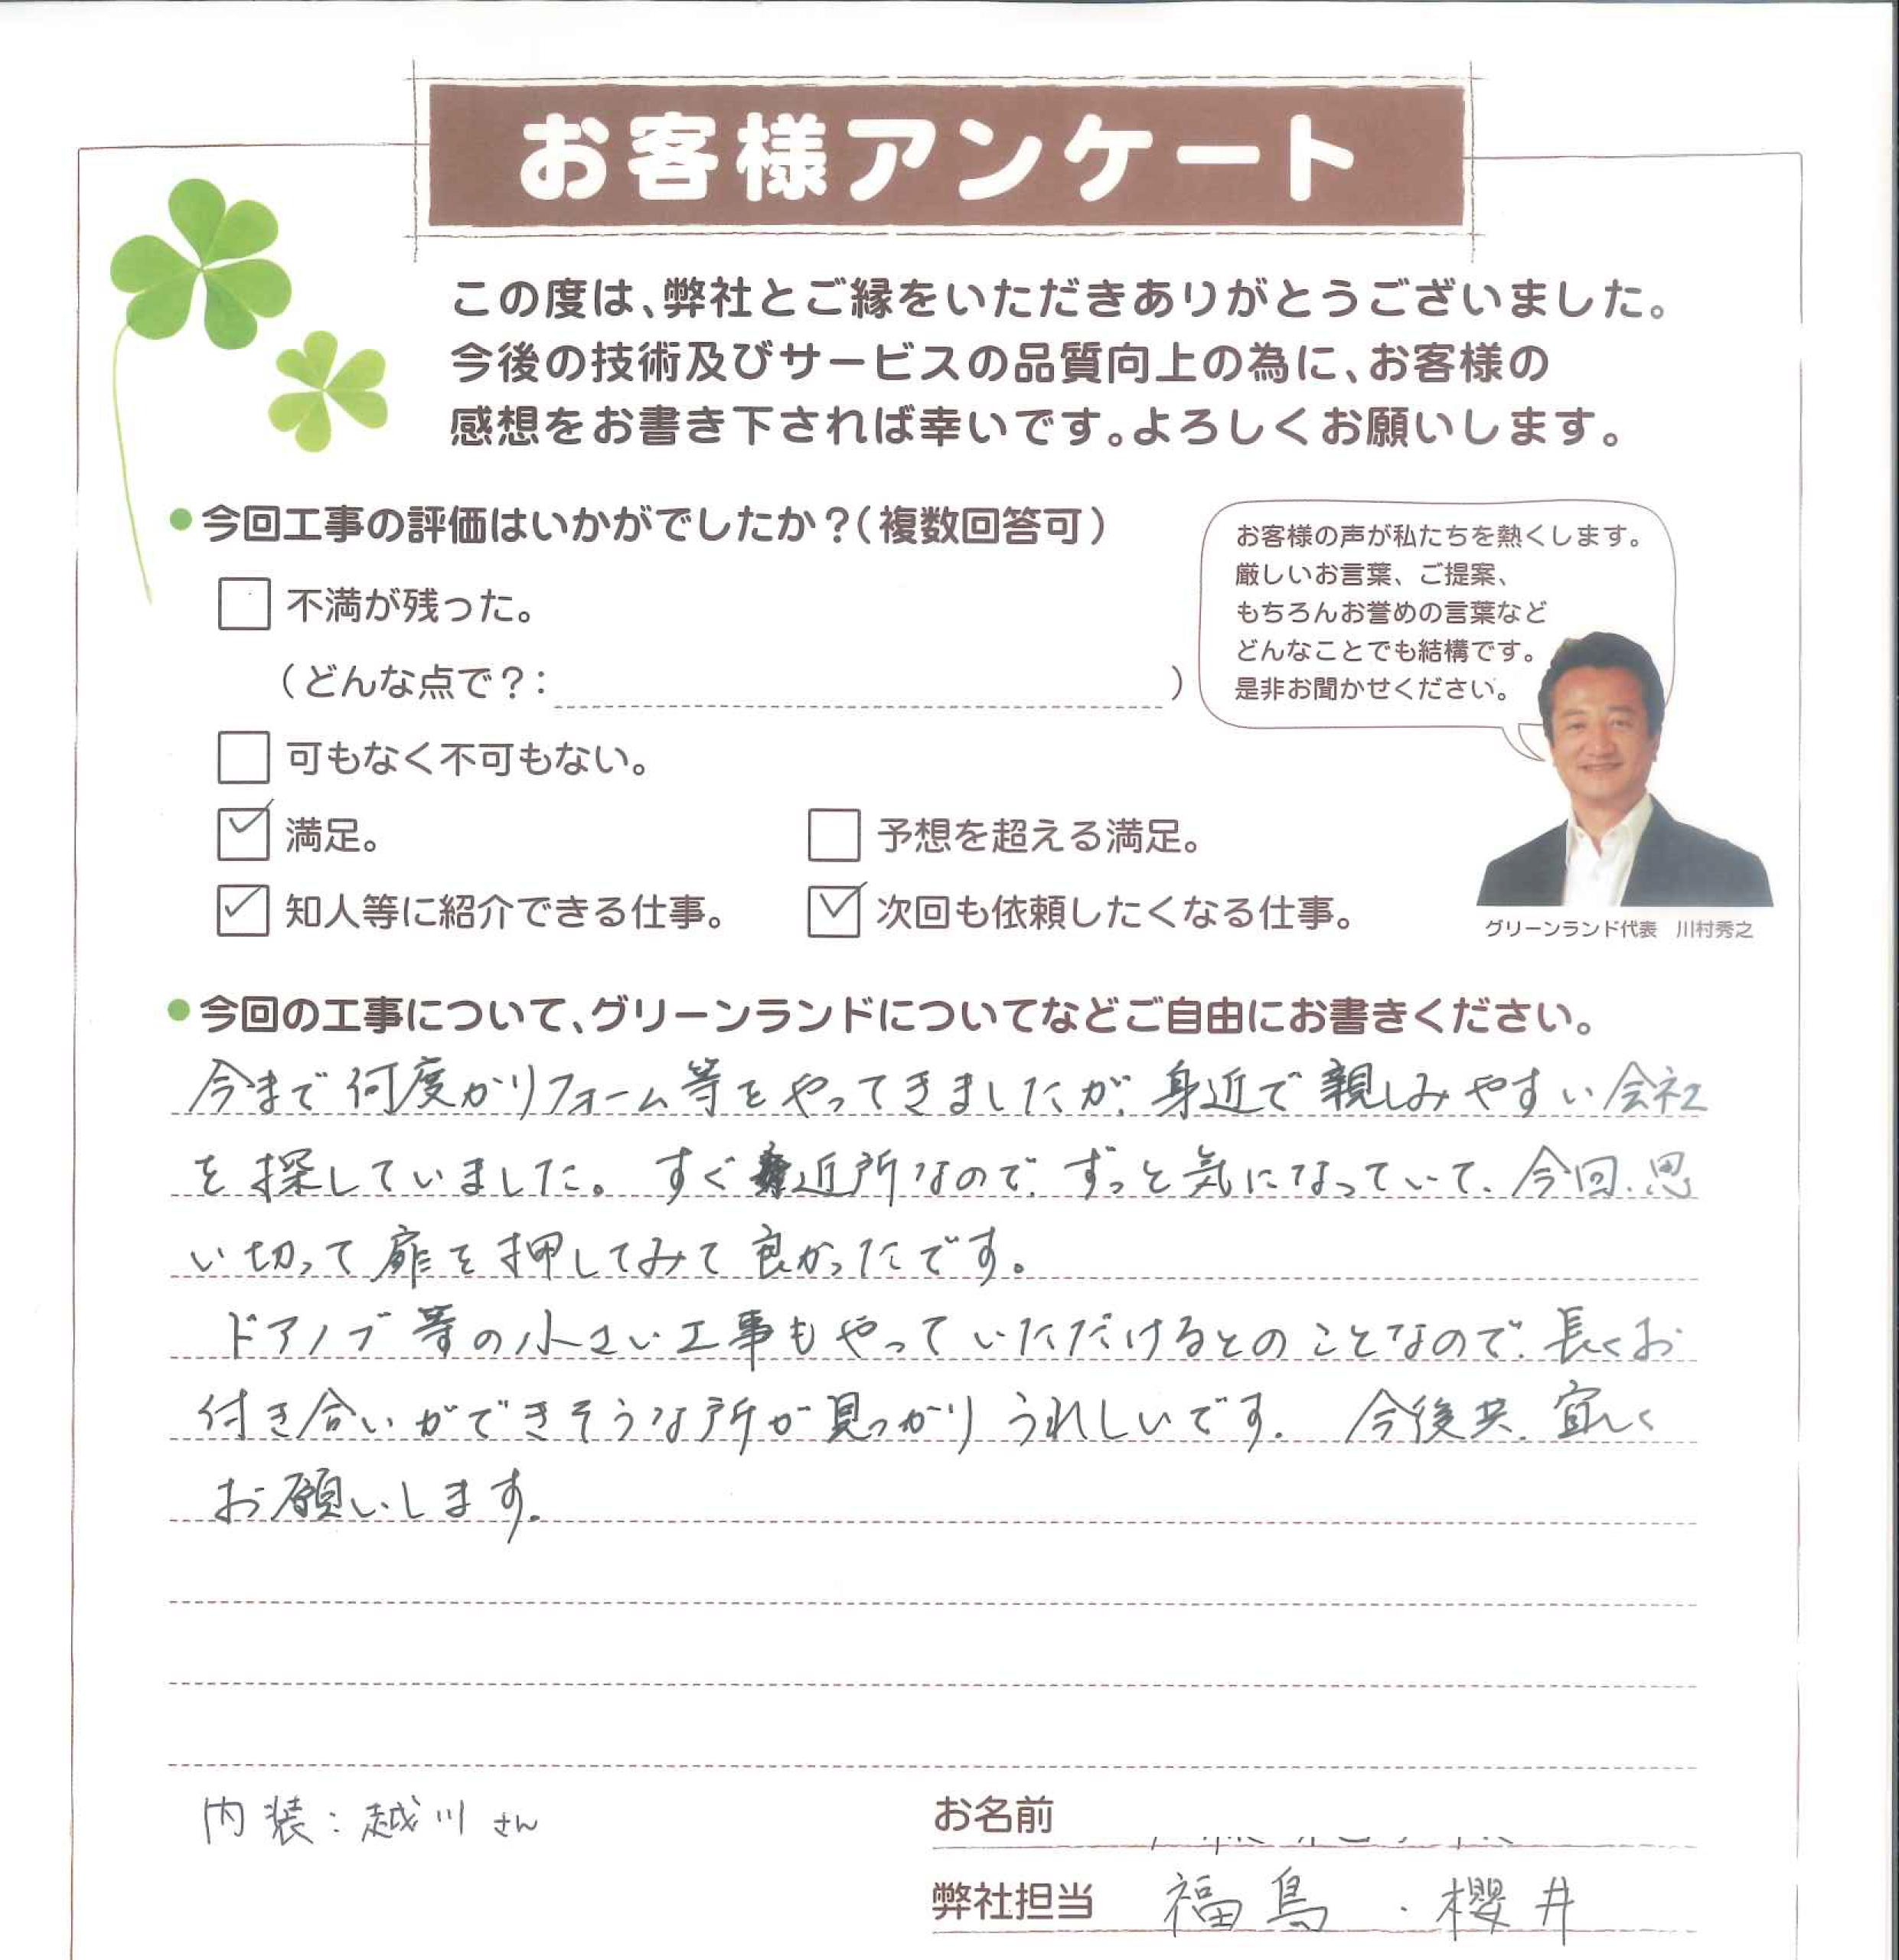 お客様アンケート
この度は、弊社とご縁をいただきありがとうございました。
今後の技術及びサービスの品質向上の為に、お客様の
感想をお書き下されば幸いです。よろしくお願いします。
今回工事の評価はいかがでしたか？（複数回答可）
不満が残った。
（どんな点で？： ）
可もなく不可もない。
満足。
予想を超える満足。
知人等に紹介できる仕事。
次回も依頼したくなる仕事。
お客様の声が私たちを熱くします。
厳しいお言葉、ご提案、
もちろんお誉めの言葉など
どんなことでも結構です。
是非お聞かせください。
グリーンランド代表　川村秀之
今回の工事について、グリーンランドについてなどご自由にお書きください。
今まで何度かリフォーム等をやってきましたが、身近で親しみやすい会社
を探していました。すぐ近所なので、ずっと気になっていて、今回、思
い切って扉を押してみて良かったです。
ドアノブ等の小さい工事もやっていただけるとのことなので、長くお
付き合いができそうな所が見つかりうれしいです。 今後共、宜しく
お願いします。
内装：越川さん
お名前
弊社担当 福島・櫻井